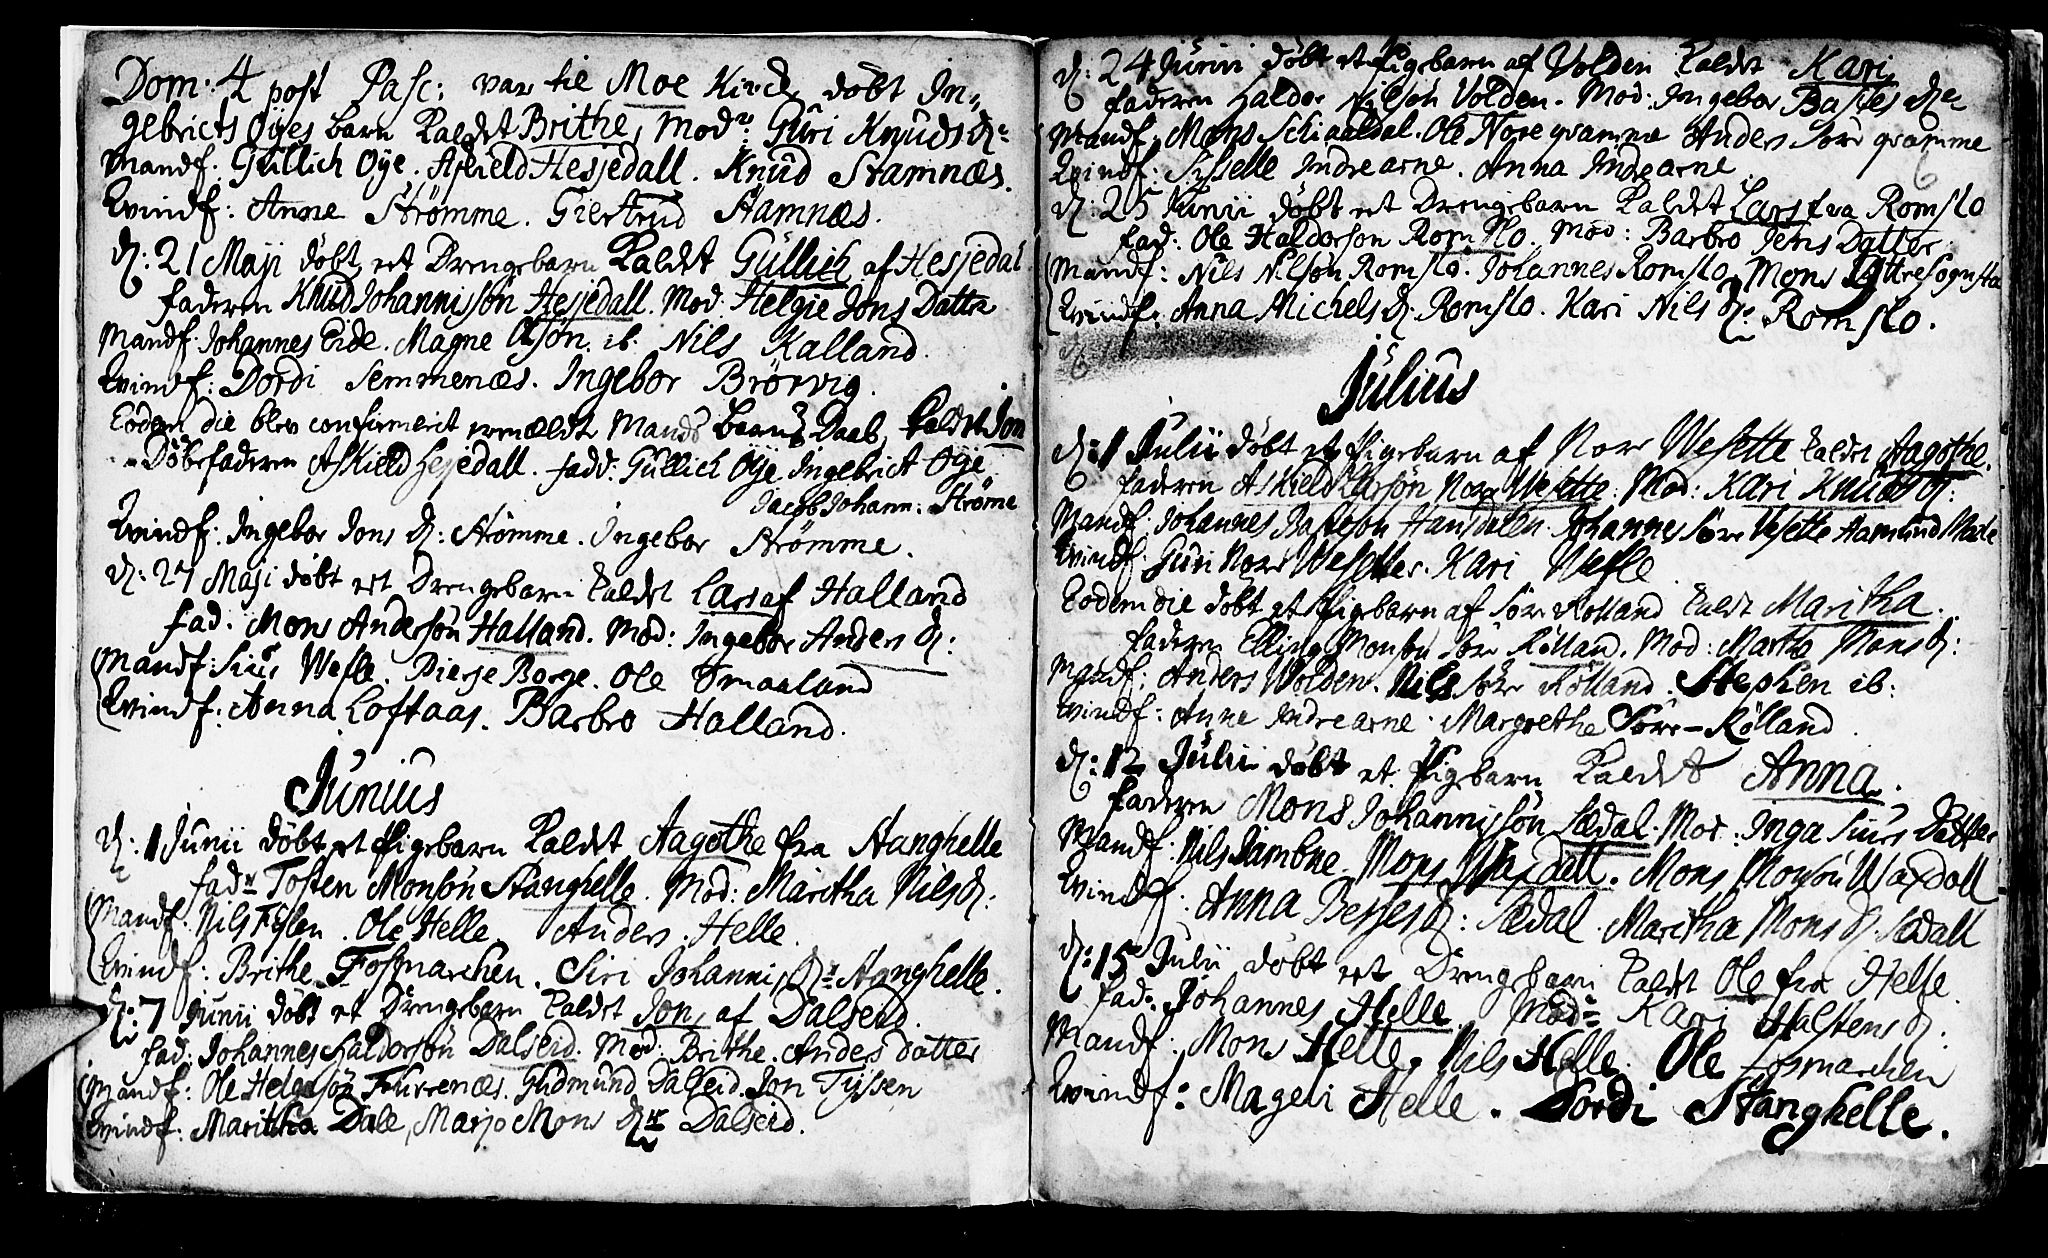 Dom. 4 post Pasc: var til Moe Kirck døbt In-
gebricts Øyes barn kaldet Brithe, Modr: Guri Knuds dr
Mandf: Gullich Øye. Askield Hesjedall. Knud Stamnæs.
Kvindf: Anne Strømme. Giertrud Stamnæs.
d: 21 Maji døbt eet Drengebarn kaldet Gullich af Hesjedal
faderen Knud Johannissøn Hesjedall. Mod: Helgie Jons Datter
Mandf: Johannes Eide. Magne Olsøn ib. Nils Kalland.
Kvindf: Dordi Semmenæs. Ingebor Brørvig.
Eodem die blev confirmerit Mands Barns Daab, kaldet Jon
Døbefaderen Askield Hesjedall. fadd: Gullich Øye Ingebrict Øye
Jacob Johann: Strøme
Kvindf: Ingebor Jons d: Strømme. Ingebor Strømme.
d: 27 Maji døbt eet Drengebarn kaldet Lars af Halland
fad: Mons Andersøn Halland. Mod: Ingebor Anders d:
Mandf: Siur Wesle. Dierge Borge. Ole Smaaland
Kvindf: Anna Loftaas. Barbro Halland.
Junius
d: 1 Junii døbt et Pigebarn kaldet Aagothe fra Stanghelle
fadr Tosten Monsøn Stanghelle. Mod: Maritha Nils d:
Mandf: Nils Fislen. Ole Helle Anders Helle.
Kvindf: Brithe Fosmarchen. Siri Johannis dr Stanghelle.
d: 7 Junii døbt et Drengebarn kaldet Jon af Dalseid.
fad: Johannes Haldorsøn Dalseid. Mod: Brithe Anders datter
Mandf: Ole Helgesøn Furrenæs. Gudmund Dalseid. Jon Tyssen
Kvindf: Maritha Dale, Marjo Mons dr Dalseid.
d: 24 Junii døbt et Pigebarn af Volden kaldet Kari
faderen Haldor Nilsøn Volden. Mod: Ingebor Basses dr
Mandf: Mons Schiaaldal. Ole Nore gramme Anders Søre gramme
Kvindf: Sisselle Indre arne. Anna Indre arne.
d: 25 Junii døbt eet Drengebarn kaldet Lars fra Romslo
fad: Ole Haldorson Romslo. Mod: Barbro Jens Datter.
Mandf: Nils Nilsøn Romslo. Johannes Romslo. Mons Yttre
Kvindf: Anna Michels d. Romslo. Kari Nils d: Romslo.
Julius
d: 1 Julii døbt et Pigebarn af Nore Wesette kaldet Aagothe.
faderen Askield Larsøn Nore Wesette. Mod: Kari Knuds d:
Mandf: Johannes Hansdalen. Johannes Søre Vesette Aamund
Kvindf: Guri Nore Wesette. Kari Wesle
Eodem die døbt et Pigebarn af Søre Rølland kaldt Maritha.
faderen Elling Monsøn Søre Rølland. Mod: Martha Mons d:
Mandf: Anders Wolden. Nils Søre Rølland. Stephen ib:
Kvindf: Anne Indre arne. Margrethe Søre-Rølland.
d: 12 Julii døbt et Pigbarn kaldet Anna.
faderen Mons Johannissøn Sædal. Mod: Inga Siurs Datter
Mandf: Nils Jambne. Mons Waxdall. Mons Monsøn Waxdall
Kvindf: Anna Besses d: Sædal. Maritha Mons d. Sædall
d: 15 Julii døbt eet Drengebarn kaldet Ole fra Helle.
fad: Johannes Helle. Modr Kari Halstens d:
Mandf: Mons Helle. Nils Helle. Ole Fosmarchen
Kvindf: Mageli Helle. Dordi Stanghelle.